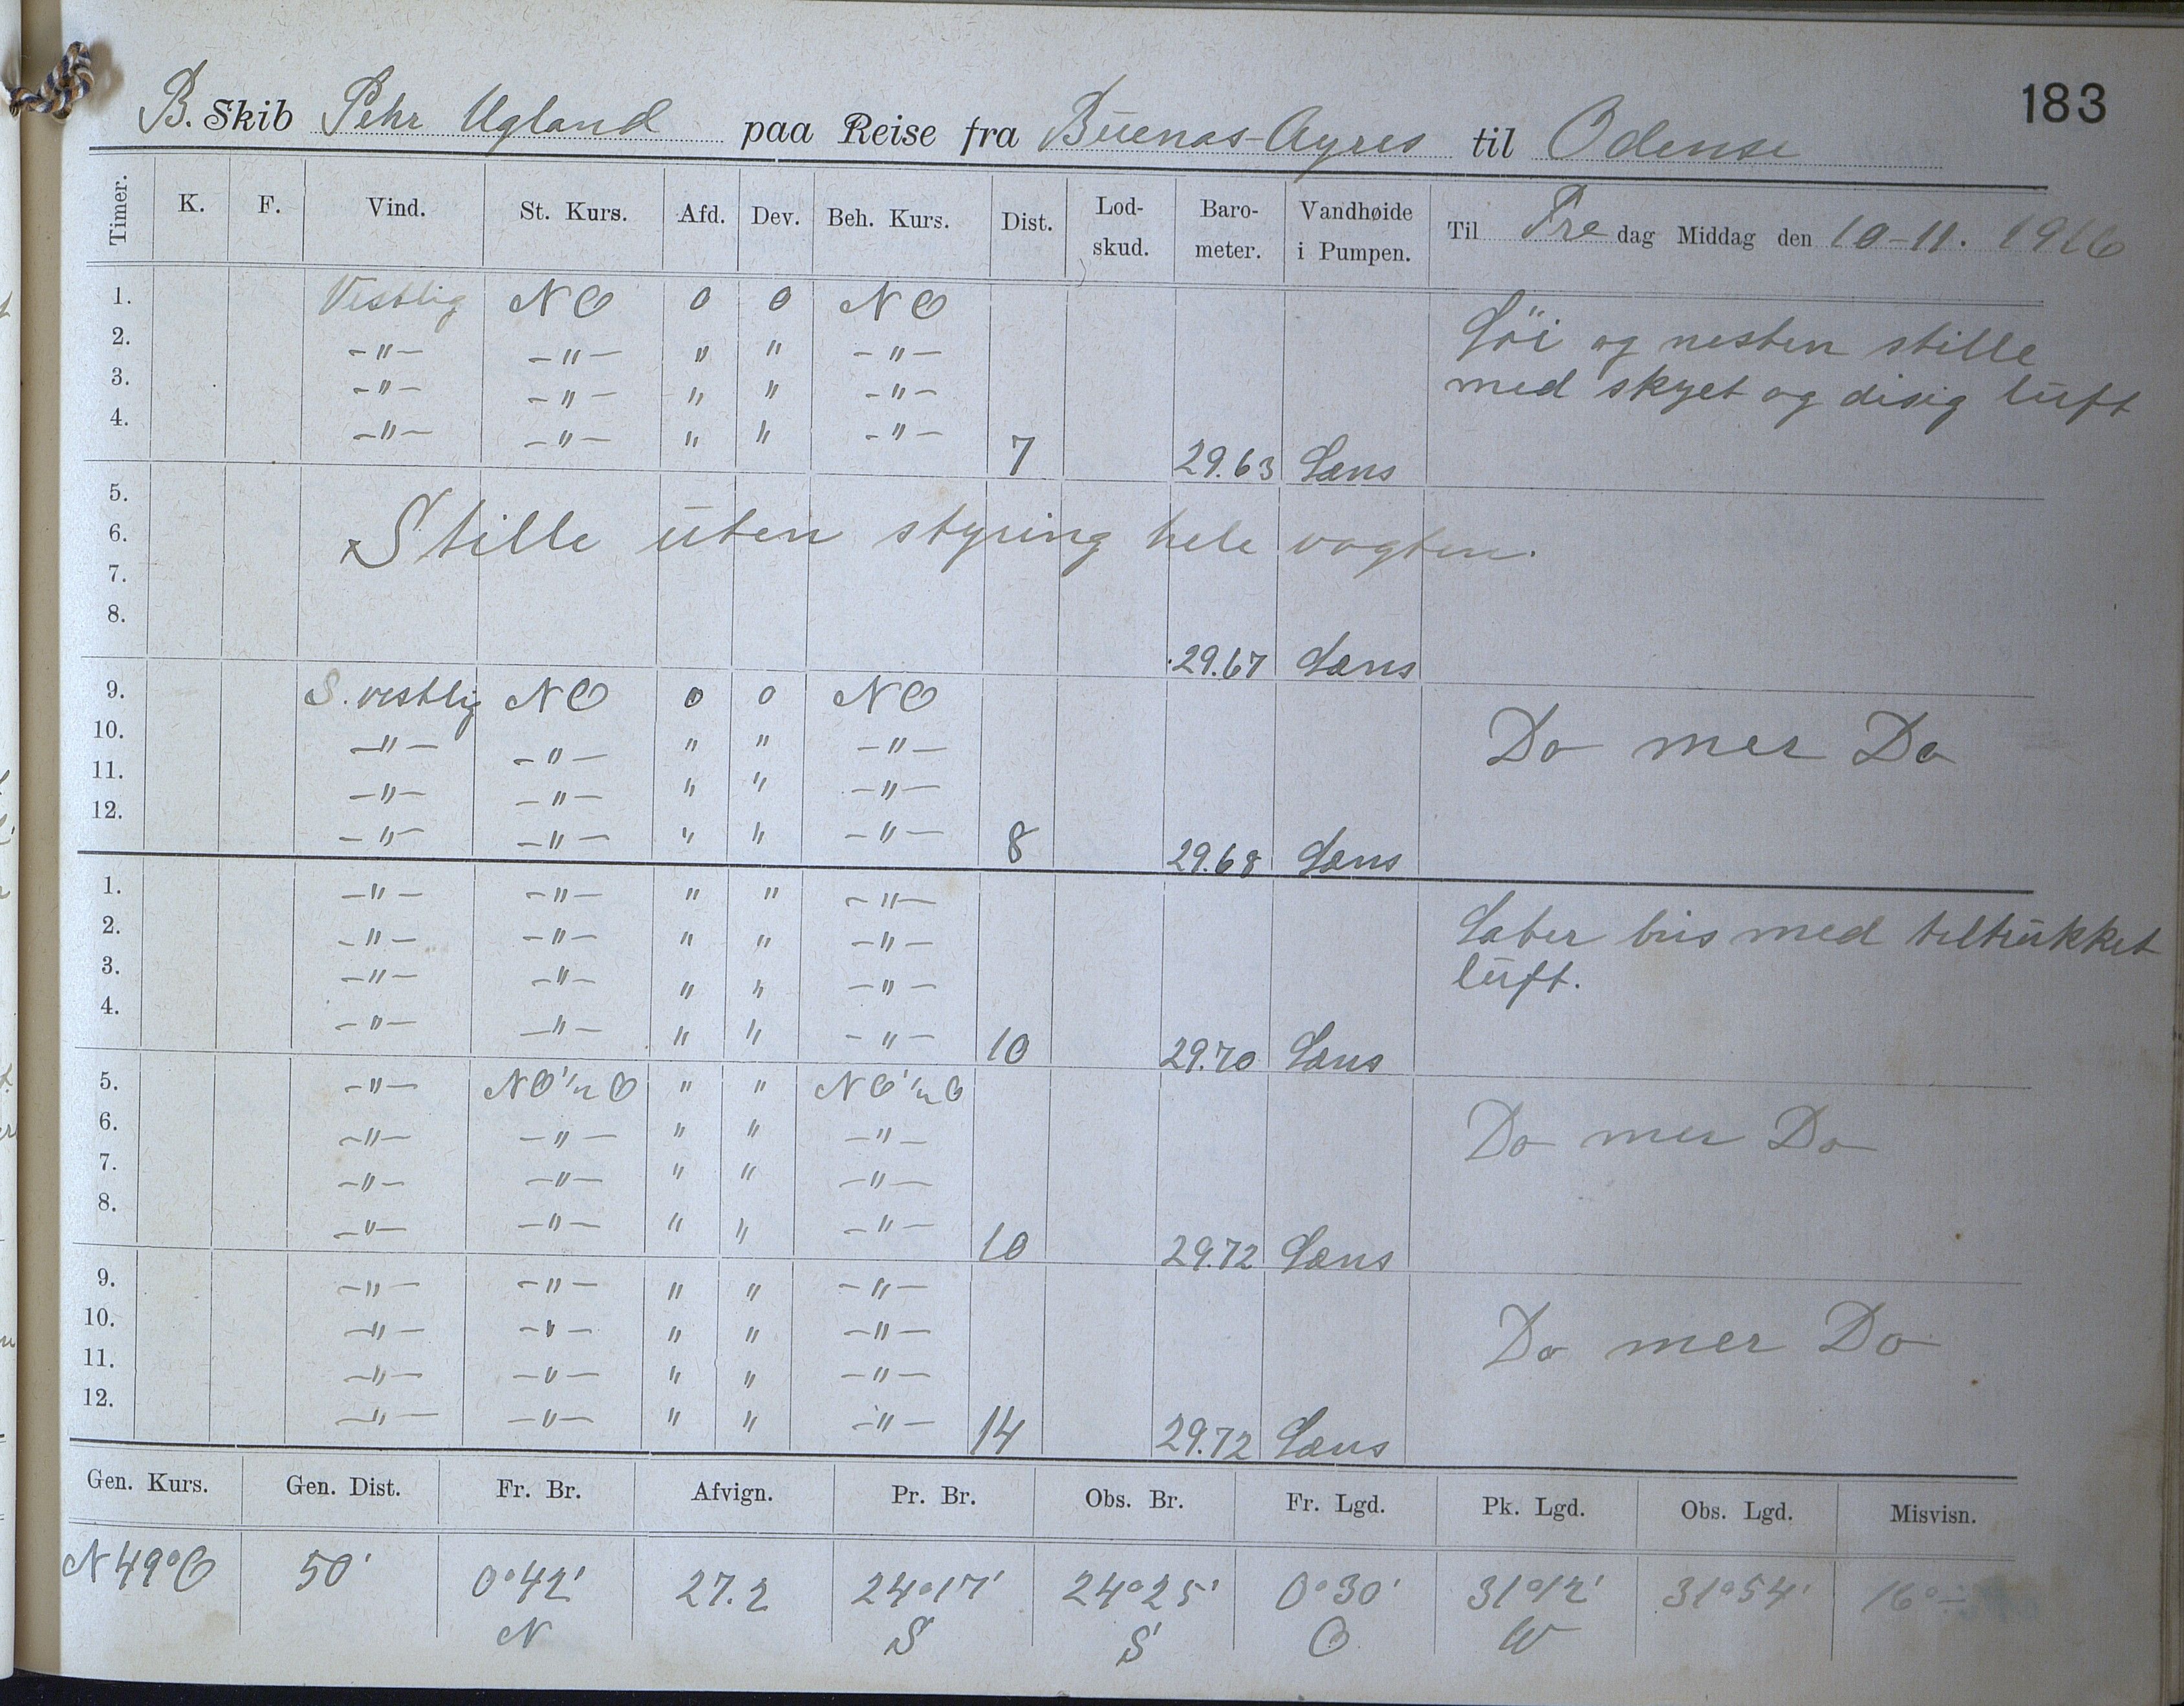 183
B. Skib Pehr Ugland paa Reise fra Buenos-Ayres til Odense
Timer. K. F. Vind. St. Kurs. Afd. Dev. Beh. Kurs. Dist. Lod-skud. Baro-meter. Vandhøide i Pumpen. Til Fre dag Middag den 10-11. 1916
1. Vestlig NO 0 0 NO Løi og nesten stille
2. -"- -"- " " -"-
3. -"- -"- " " -"- med skyet og disig luft
4. -"- -"- " " -"- 7 29.63 Læns
5.
6. Stille uten styring hele vagten.
7.
8. 29.67 Læns
9. S. vestlig NO 0 0 NO
10. -"- -"- " " -"- Do mer Do
11. -"- -"- " " -"-
12. -"- -"- " " -"- 8 29.68 Læns
1. -"- -"- " " -"-
2. -"- -"- " " -"- Laber bris med tiltrukket
3. -"- -"- " " -"- luft.
4. -"- -"- " " -"- 10 29.70 Læns
5. -"- NO½O " " NO½O
6. -"- -"- " " -"- Do mer Do
7. -"- -"- " " -"-
8. -"- -"- " " -"- 10 29.72 Læns
9. -"- -"- " " -"-
10. -"- -"- " " -"- Do mer Do
11. -"- -"- " " -"-
12. -"- -"- " " -"- 14 29.72 Læns
Gen. Kurs. Gen. Dist. Fr. Br. Afvign. Pr. Br. Obs. Br. Fr. Lgd. Pk. Lgd. Obs. Lgd. Misvisn.
N 49° O 50' 0°42' 27.2 24°17' 24°25' 0°30' 31°12' 31°54' 16°
N S S O W